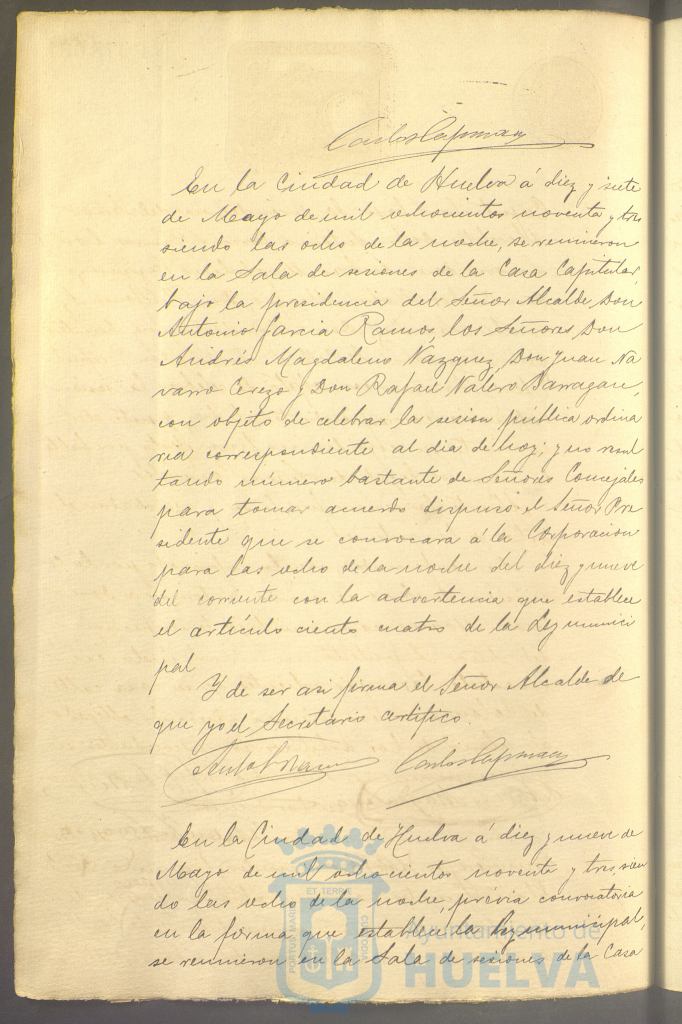 En la Ciudad de Huelva á diez y siete
de Mayo de mil ochocientos noventa y tres
siendo las ocho de la noche, se reunieron
en la Sala de sesiones de la Casa Capitular,
bajo la presidencia del Señor Alcalde, Don
Antonio Garcia Ramos, los Señores, Don
Andrés Magdaleno Vázquez, Don Juan Na
varro Cerezo y Don Rafael Valero Barragan,
con objeto de celebrar la sesion pública ordina
ria correspondiente al dia de hoy; y no resul
tando número bastante de Señores Concejales
para tomar acuerdo dispuso el Señor Pre
sidente que se convocara á la Corporacion
para las ocho de la noche del diez y nueve
del corriente con la advertencia que establece
el artículo ciento cuatro de la Ley munici
pal
Y de ser asi firma el Señor Alcalde de
que yo el Secretario certifico.
En la Ciudad de Huelva á diez y nueve de
Mayo de mil ochocientos noventa y tres, sien
do las ocho de la noche, prévia convocatoria
en la forma que establece la ley municipal,
se reunieron en la Sala de sesiones de la Casa
Ayuntamiento de
HUELVA